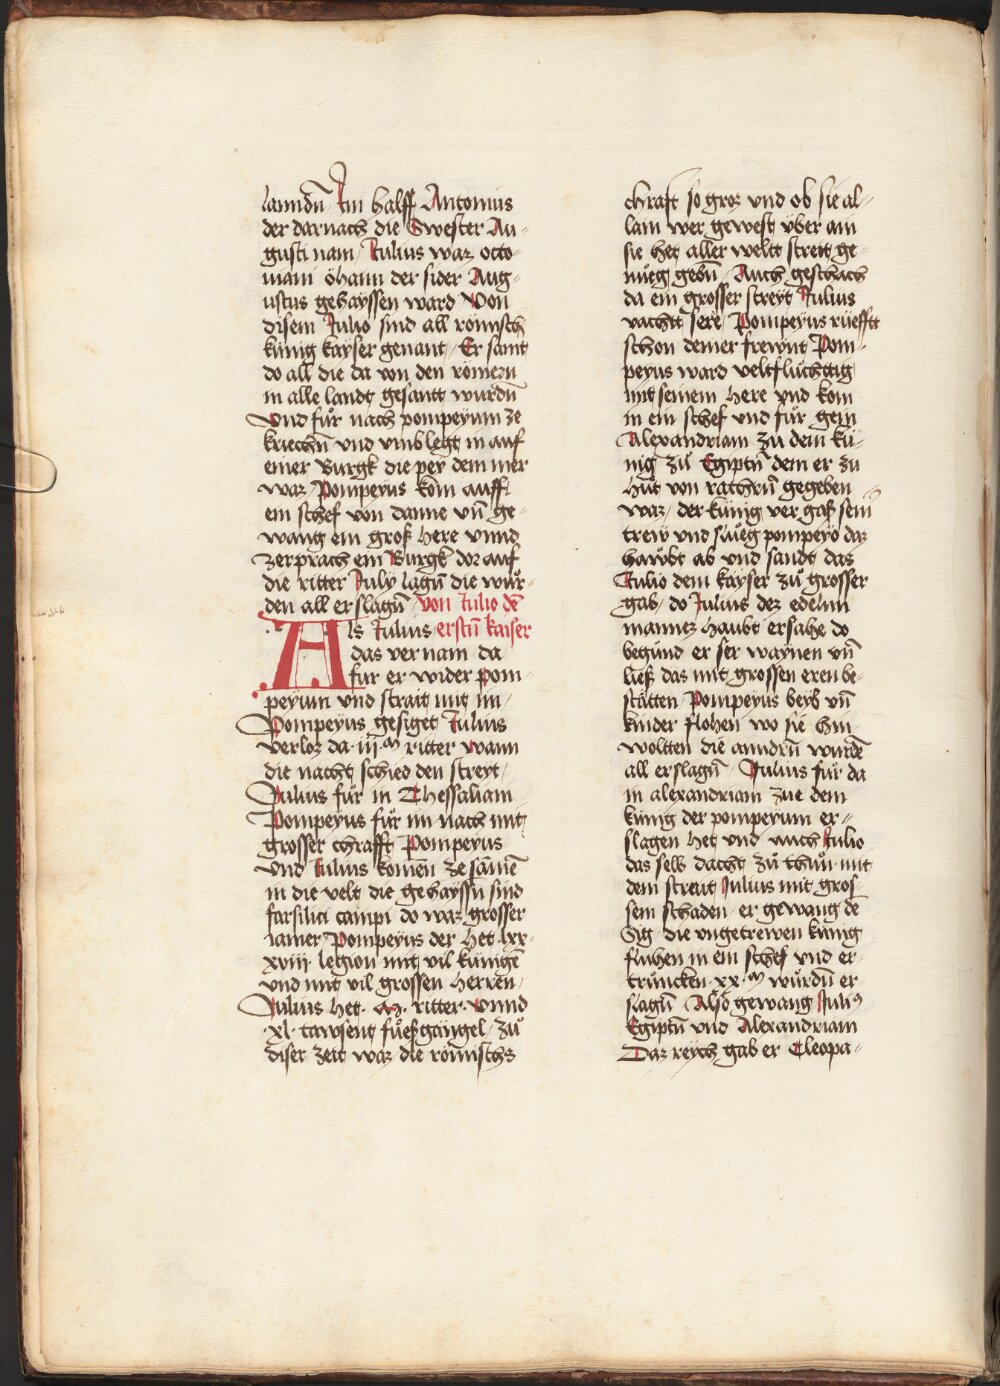 lanndn̄ Im halff Antonius
der darnach die Swester Au-
gusti nam / Julius waz octo-
uiani öhaim der sider Aug-
ustus gehayssen ward Von
disem Julio sind all römisch
künig kayser genant / Er sant
do all die da von den römern
in alle landt gesantt wurdn̄
vnd fůr nach pompeyum ze
kriechn̄ vnd vmblegt in auf
einer Burgk die pey dem mer
waz / Pompeyus kom auff
ein schef von danne vn̄ ge-
wang ein groß here vnnd
zerprach ein Burgk dor auf
die ritter July lagn̄ die wůr-
den all erslagn̄ / von Julio dē
Als Julius / erstn̄ kaiser
das vernam da
fur er wider Pom-
peyum vnd strait mit im /
Pompeyus gesiget Julius
verloz da iij m ritter wann
die nacht schied den streyt /
Julius fůr in Thessaliam
Pompeyus fůr im nach mit
grosser chrafft Pompeyus
vnd Julius komen̄ ze sāmē
in die velt die gehayssn̄ sind
farsilici campi do waz grosser
iamer / Pompeyus der het lxx-
xviij legion mit vil künigē
vnd mit vil grossen herren /
Julius het · M · ritter · vnnd
· xl · tawsent fůeßgängel / zů
diser zeit waz die römischs
chraft so groz vnd ob sie al-
lain wer gewest vber ain
sie het aller weltt streit ge-
nůeg gebn̄ / Auch geschach
da ein grosser streyt Julius
vachtt sere / Pompeyus rüefftt
schon deiner frewnt Pom-
peyus ward veltflüchttig
mit seinem here vnd kom
in ein schef vnd für gein
Alexandriam zu dem kü-
nig zů Egiptn̄ dem er zu
hůt von rathrn̄ gegeben
waz / der künig vergaß sein
trew vnd slůeg pompeyo daz
hawbt ab vnd sandt das
Julio dem kayser zů grosser
gab / do Julius dez edelnn
mannez haubt ersahe do
begund er ser waynen vn̄
ließ das mit grossen eren be-
stätten Pompeyus beyb vn̄
kinder flohen wo sie hin
woltten die anndrn̄ wurdē
all erslagn̄ / Julius für da
in alexandriam zue dem
künig der pompeyum er-
slagen het vnd auch Julio
das selb dacht zů thůn mit
dem streitt Julius mit gros-
sem schaden er gewang dē
Sig die vngetrewen künig
fluhen in ein schef vnd er-
trüncken · xx · m wůrdn̄ er
slagn̄ Also gewang Juli9
Egiptn̄ vnd Alexandriam
Daz reych gab er Cleopa-